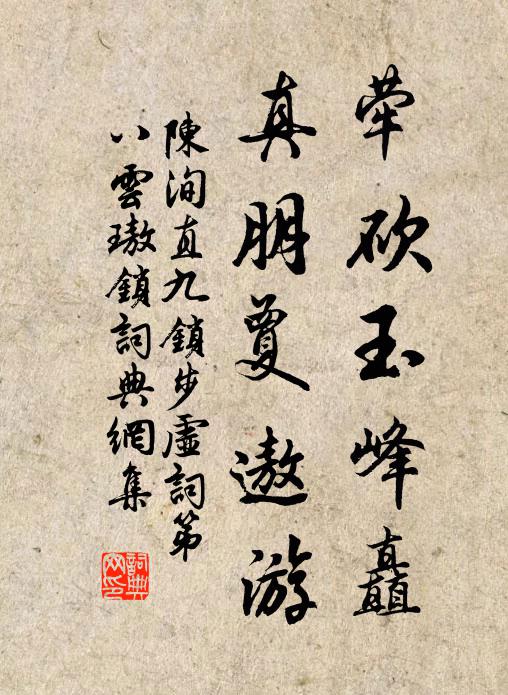 荦砍玉峰矗
真朋夐遨游
陳洵直九鎖步虛詞第
八雲璈鎖詞典網集
詞典
网印